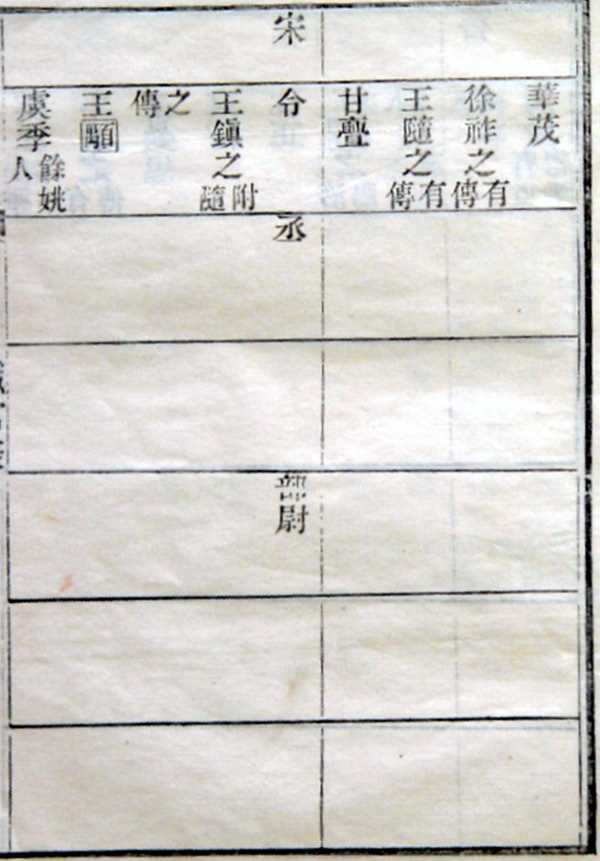 華茂
徐祚之有傳
王隨之有傳
甘疊
宋
令
丞
部尉
王鎮之附隨
之傳
王顒
虞季餘姚人